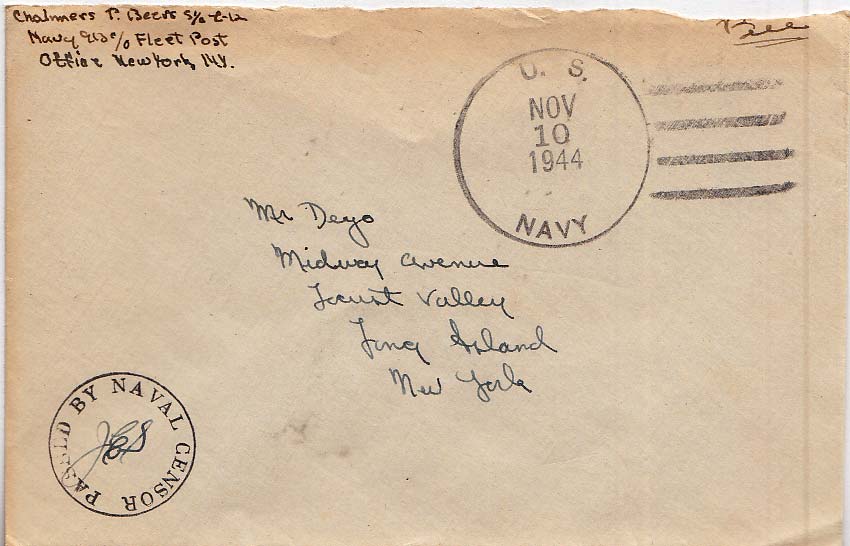 Chalmers P. Beers S/2c C-12
Navy 913 c/o Fleet Post
Office New York, N.Y.
Free
U. S.
NOV
10
1944
NAVY
Mr Deyo
Midway Avenue
Locust Valley
Long Island
New York
PASSED BY NAVAL CENSOR
JES